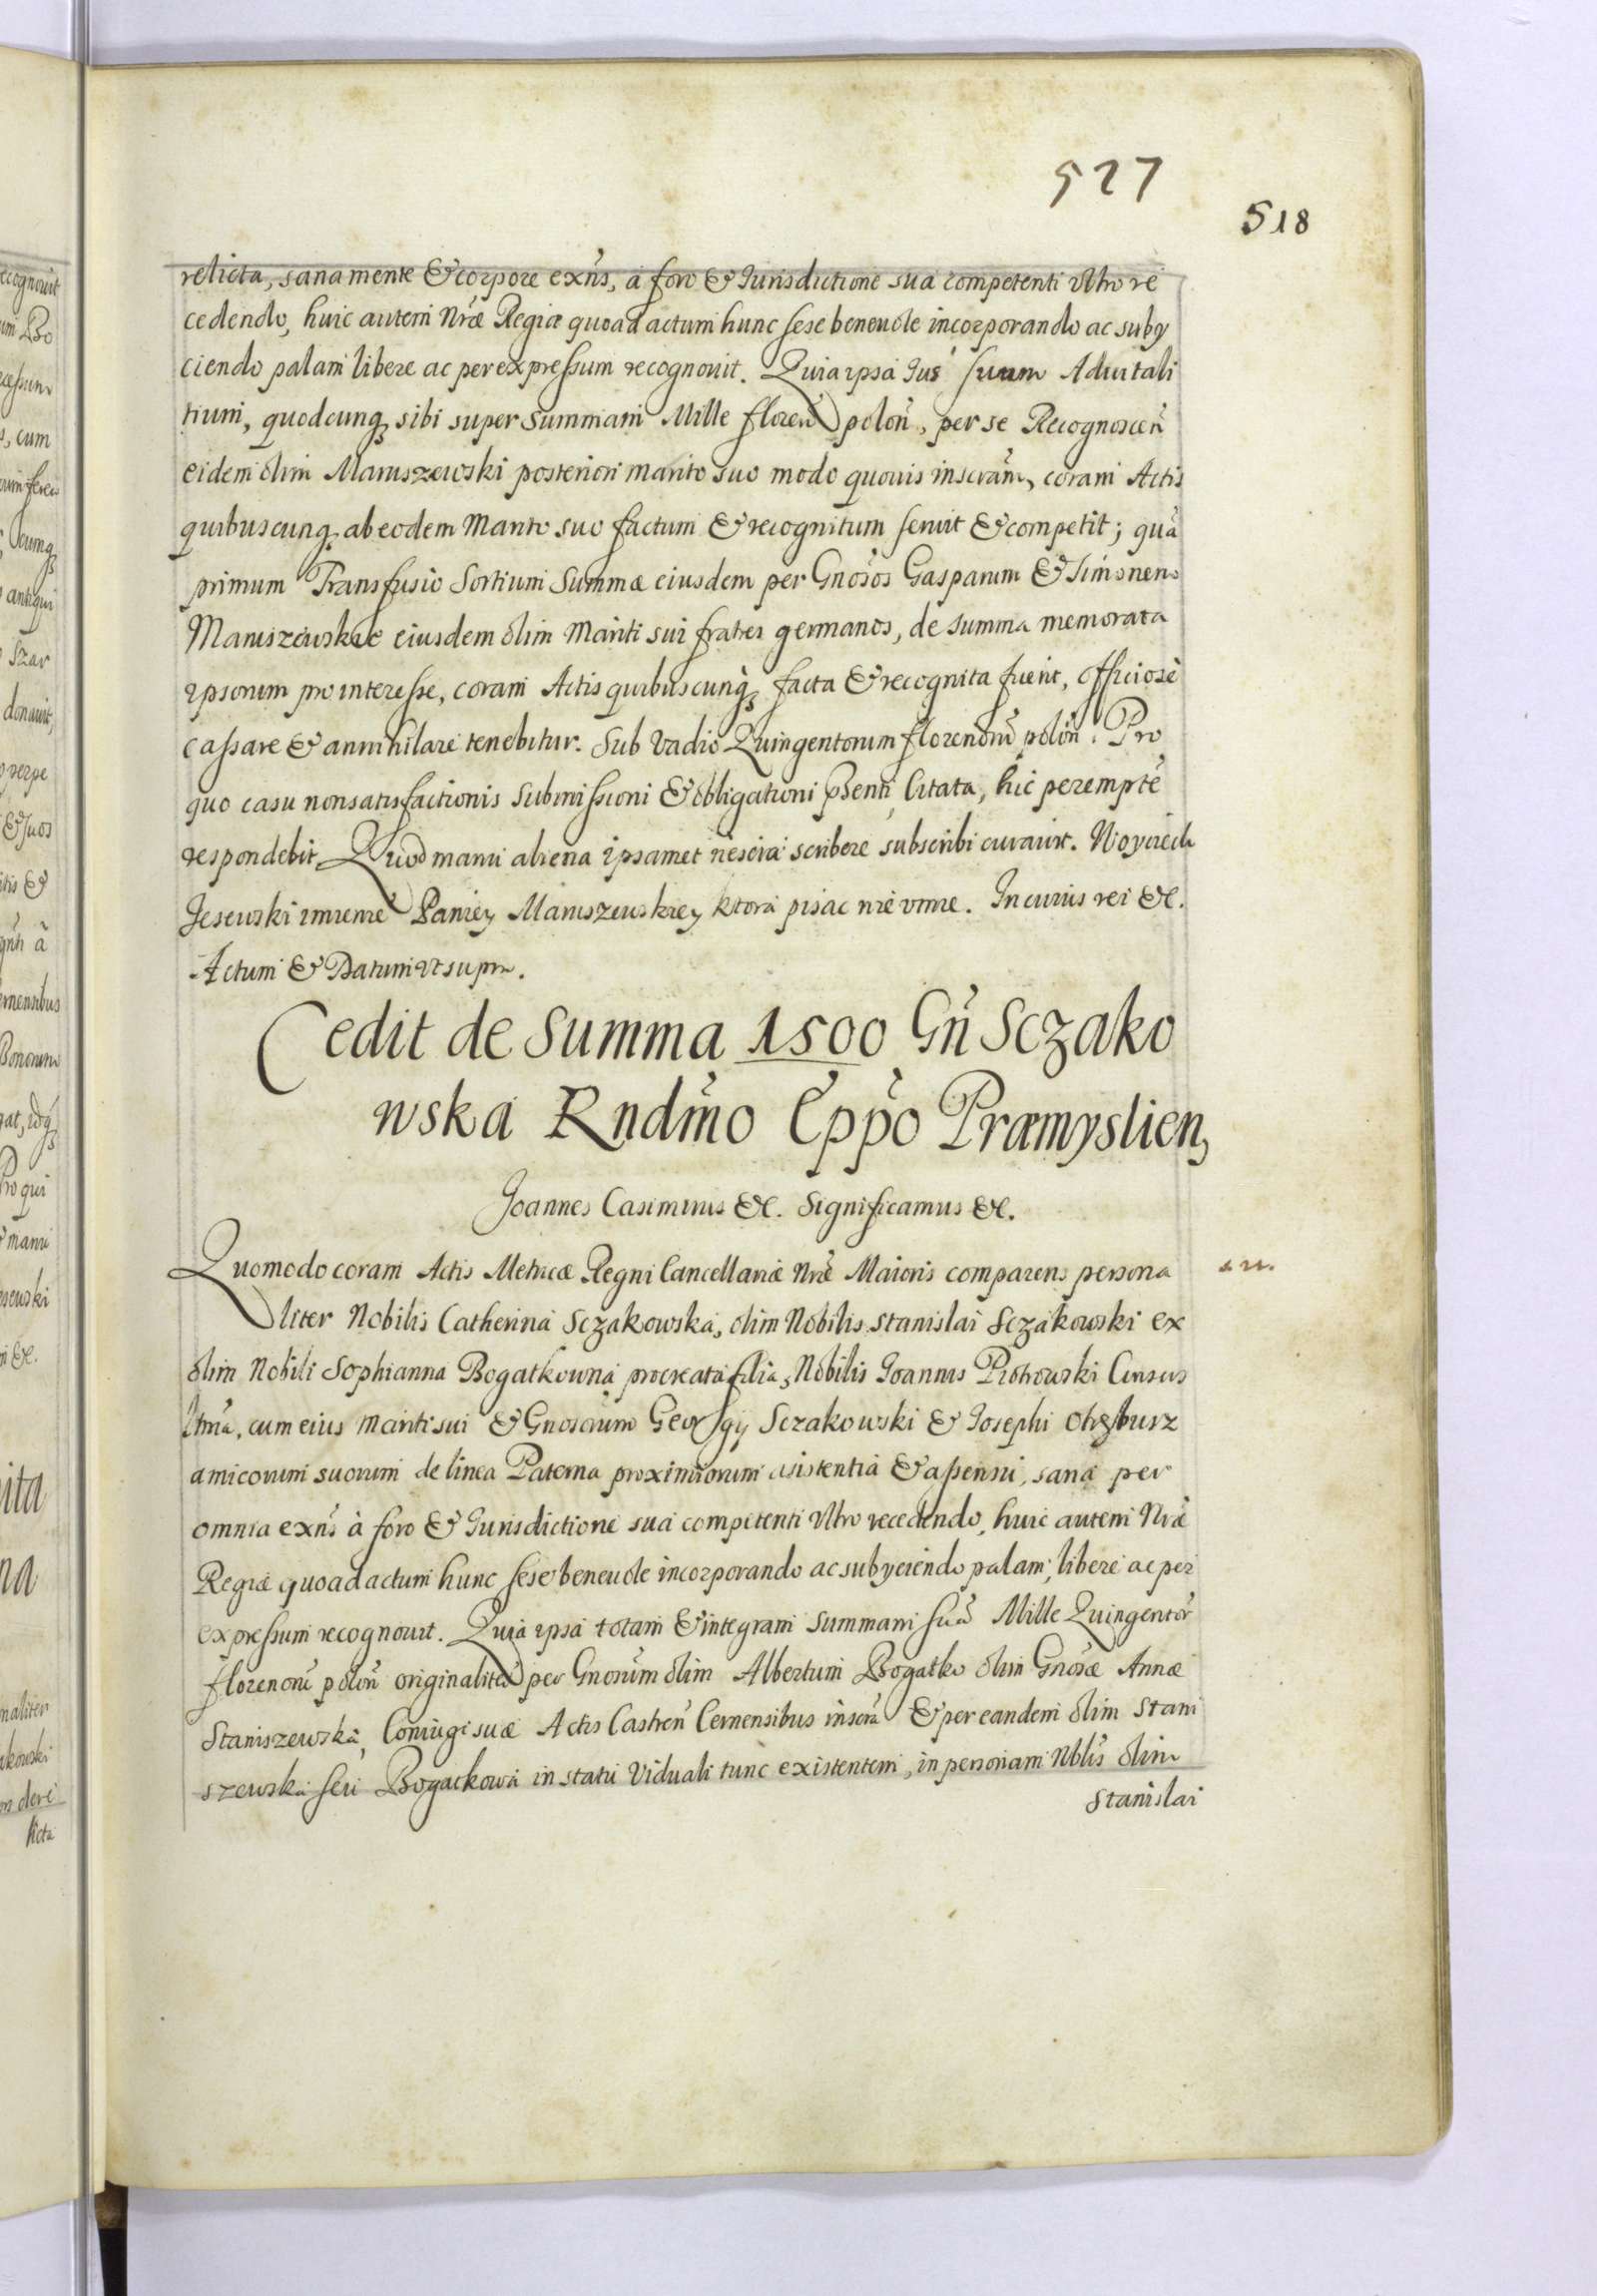 527
518
relicta, sana mente & corpore exñs, a foro & Jurisdictione sua competenti vltro re
cedendo, huic autem Nræ Regiæ quoad actum hunc sese beneuole incorporando ac suby
ciendo palam libere ac per expressum recognouit. Quia ipsa Jus suum Aduitali
tium, quodcunq sibi super summam Mille floren̄ polon̄, per se Recognoscen̄
eidem olim Maruszewski posteriori marito suo modo quouis inscram, coram Actis
quibuscunq ab eodem Marito suo factum & recognitum seruit & competit; quā
primum Transfusio Sortium Summæ eiusdem per Gnosos Gasparum & Simonem
Maruszewskie eiusdem olim Mariti sui fratres germanos, de summa memorata
ipsorum pro interesse, coram Actis quibuscunq facta & recognita fuerit, officiose
cassare & annihilare tenebitur. Sub vadio Quingentorum florenorū polon̄. Pro
quo casu non satisfactionis submissioni & obligationi pſenti, Citata, hic perempte
respondebit. Quod manu aliena ipsamet nescia scribere subscribi curauit. Woyciech
Jesewski imieniē Paniey Maruszewskiey ktora pisac nie vmie. In cuius rei &c.
Actum & Datum vt supra.
Cedit de Summa 1500 Gn̄ Sczako
wska Rndmo Eppo Præmyslien,
Joannes Casimirus &c. Significamus &c.
Quomodo coram Actis Metricæ Regni Cancellariæ Nræ Maioris comparens persona
liter Nobilis Catherina Sczakowska, olim Nobilis Stanislai Sczakowski ex
olim Nobili Sophianna Bogatkowna procreata filia, Nobilis Joannis Piotrowski Consors
ltma, cum eius Mariti sui & Gnosorum Georgy Sczakowski & Josephi
amicorum suorum de linea Paterna proximiorum asistentia & assensu, sana per
omnia exñs à foro & Jurisdictione sua competenti vltro recedendo, huic autem Nræ
Regiæ quoad actum hunc sese beneuole incorporando ac subyciendo palam, libere ac per
expressum recognouit. Quia ipsa totam & integram summam suā Mille Quingentor̄
florenorū polon̄ originaliter per Gnosum olim Albertum Bogatko olim Gnosæ Annæ
Staniszewska, Coniugi suæ Actis Castren̄ Cernensibus inscrā & per eandem olim Stani
szewska seu Bogackowa in statu Viduali tunc existentem, in personam Nblis olim
Stanislai